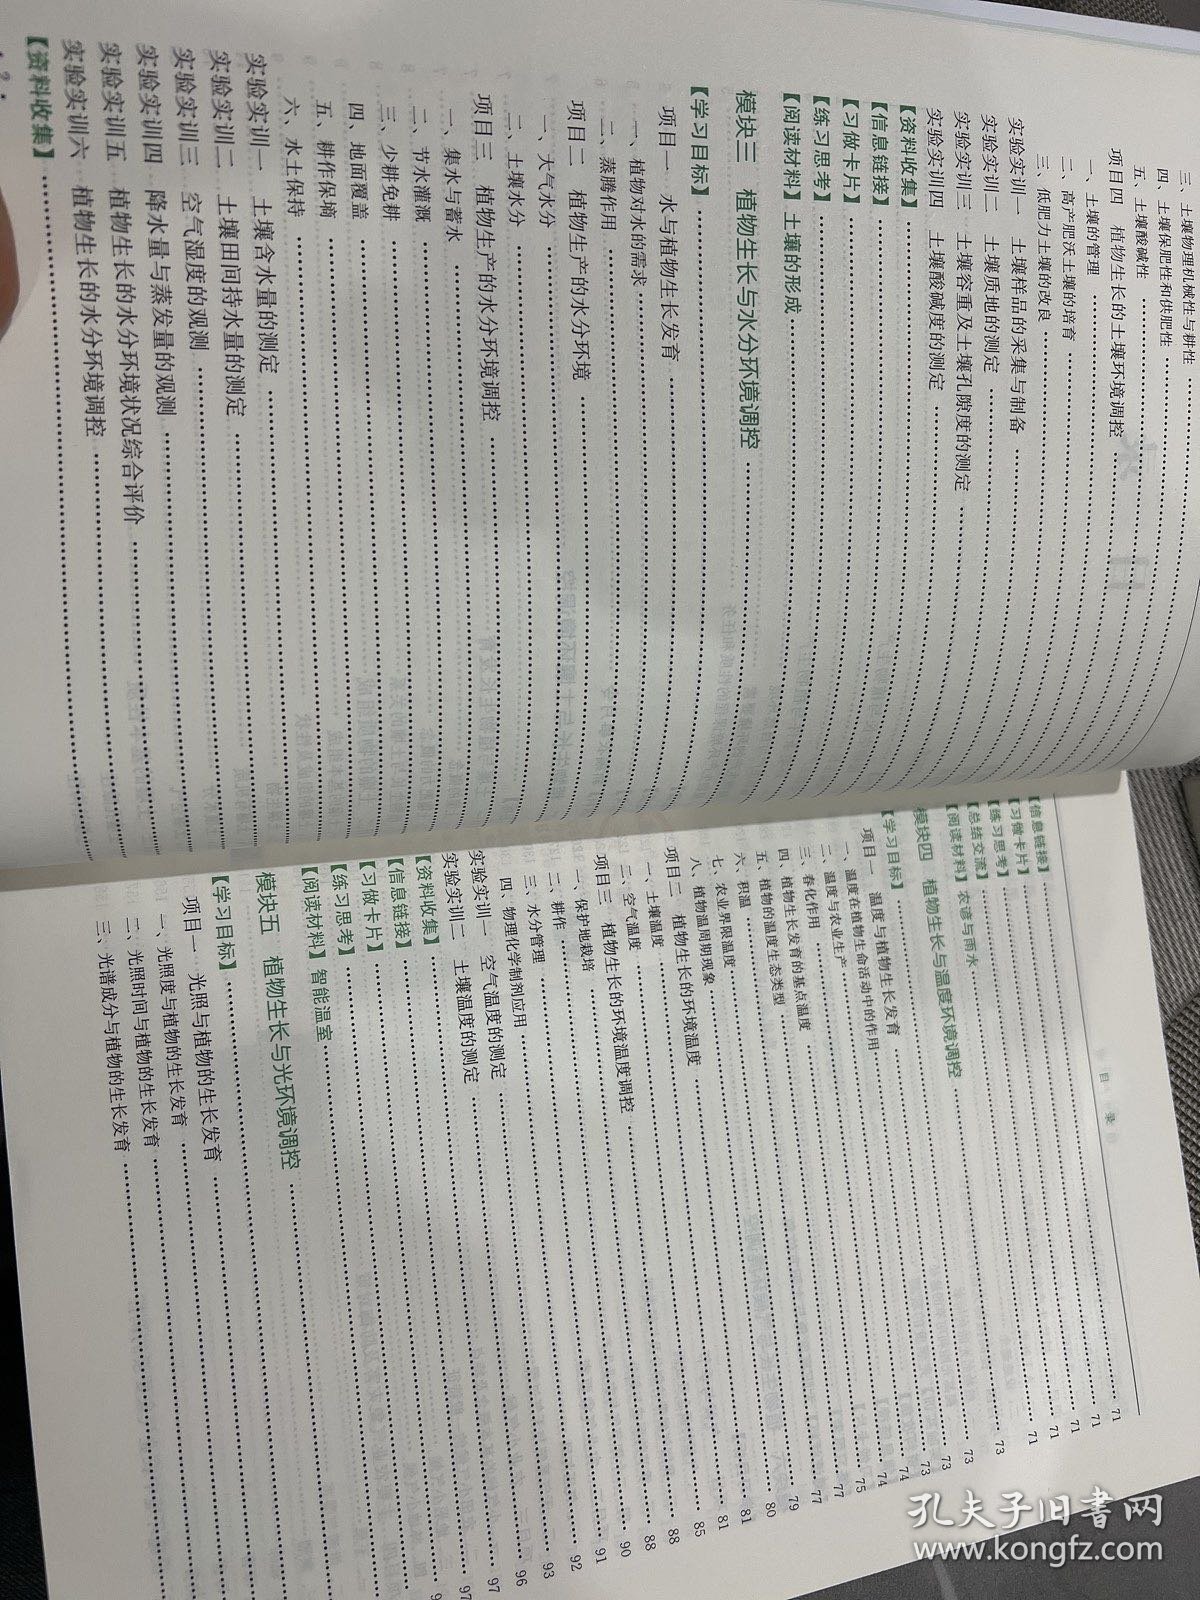 三、土壤物理机械性与耕性
四、土壤保肥性和供肥性
五、土壤酸碱性
项目四 植物生长的土壤环境调控
一、土壤的管理
二、高产肥沃土壤的培育
三、低肥力土壤的改良
实验实训一 土壤样品的采集与制备
实验实训二 土壤质地的测定
实验实训三 土壤容重及土壤孔隙度的测定
实验实训四 土壤酸碱度的测定
【资料收集】
【信息链接】
【习做卡片】
【练习思考】
【阅读材料】土壤的形成
模块三 植物生长与水分环境调控
【学习目标】
项目一 水与植物生长发育
一、植物对水的需求
二、蒸腾作用
项目二 植物生产的水分环境
一、大气水分
二、土壤水分
项目三 植物生产的水分环境调控
一、集水与蓄水
二、节水灌溉
三、少耕免耕
四、地面覆盖
五、耕作保墒
六、水土保持
实验实训一 土壤含水量的测定
实验实训二 土壤田间持水量的测定
实验实训三 空气湿度的观测
实验实训四 降水量与蒸发量的观测
实验实训五 植物生长的水分环境状况综合评价
实验实训六 植物生长的水分环境调控
【资料收集】
· 2 ·
目 录
【信息链接】 71
【习做卡片】 71
【练习思考】 71
【总结交流】 71
【阅读材料】农谚与雨水 71
模块四 植物生长与温度环境调控 73
【学习目标】 73
项目一 温度与植物生长发育 73
一、温度在植物生命活动中的作用 73
二、温度与农业生产 74
三、春化作用 74
四、植物生长发育的基点温度 75
五、植物的温度生态类型 77
六、积温 77
七、农业界限温度 79
八、植物温周期现象 80
项目二 植物生长的环境温度 81
一、土壤温度 81
二、空气温度 85
项目三 植物生长的环境温度调控 88
一、保护地栽培 88
二、耕作 90
三、水分管理 91
四、物理化学制剂应用 92
实验实训一 空气温度的测定 93
实验实训二 土壤温度的测定 96
【资料收集】 97
【信息链接】 97
【习做卡片】
【练习思考】
【阅读材料】智能温室
模块五 植物生长与光环境调控
【学习目标】
项目一 光照与植物的生长发育
一、光照度与植物的生长发育
二、光照时间与植物的生长发育
三、光谱成分与植物的生长发育
孔夫子旧书网
www.kongfz.com